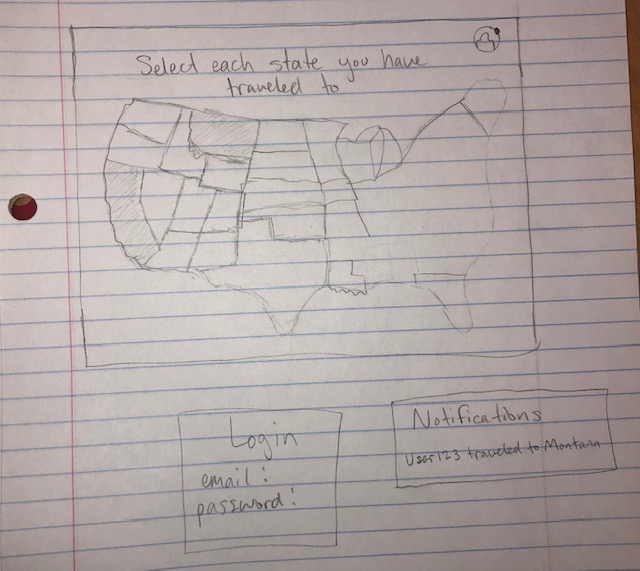 Select each state you have
traveled to
Login
email:
password:
Notifications
User123 traveled to Montana